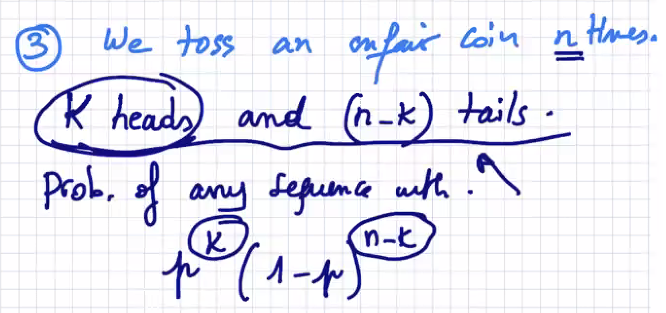 ③ We toss an unfair coin n times.
K heads and (n-k) tails.
Prob. of any sequence with.
p^k (1-p)^{n-k}